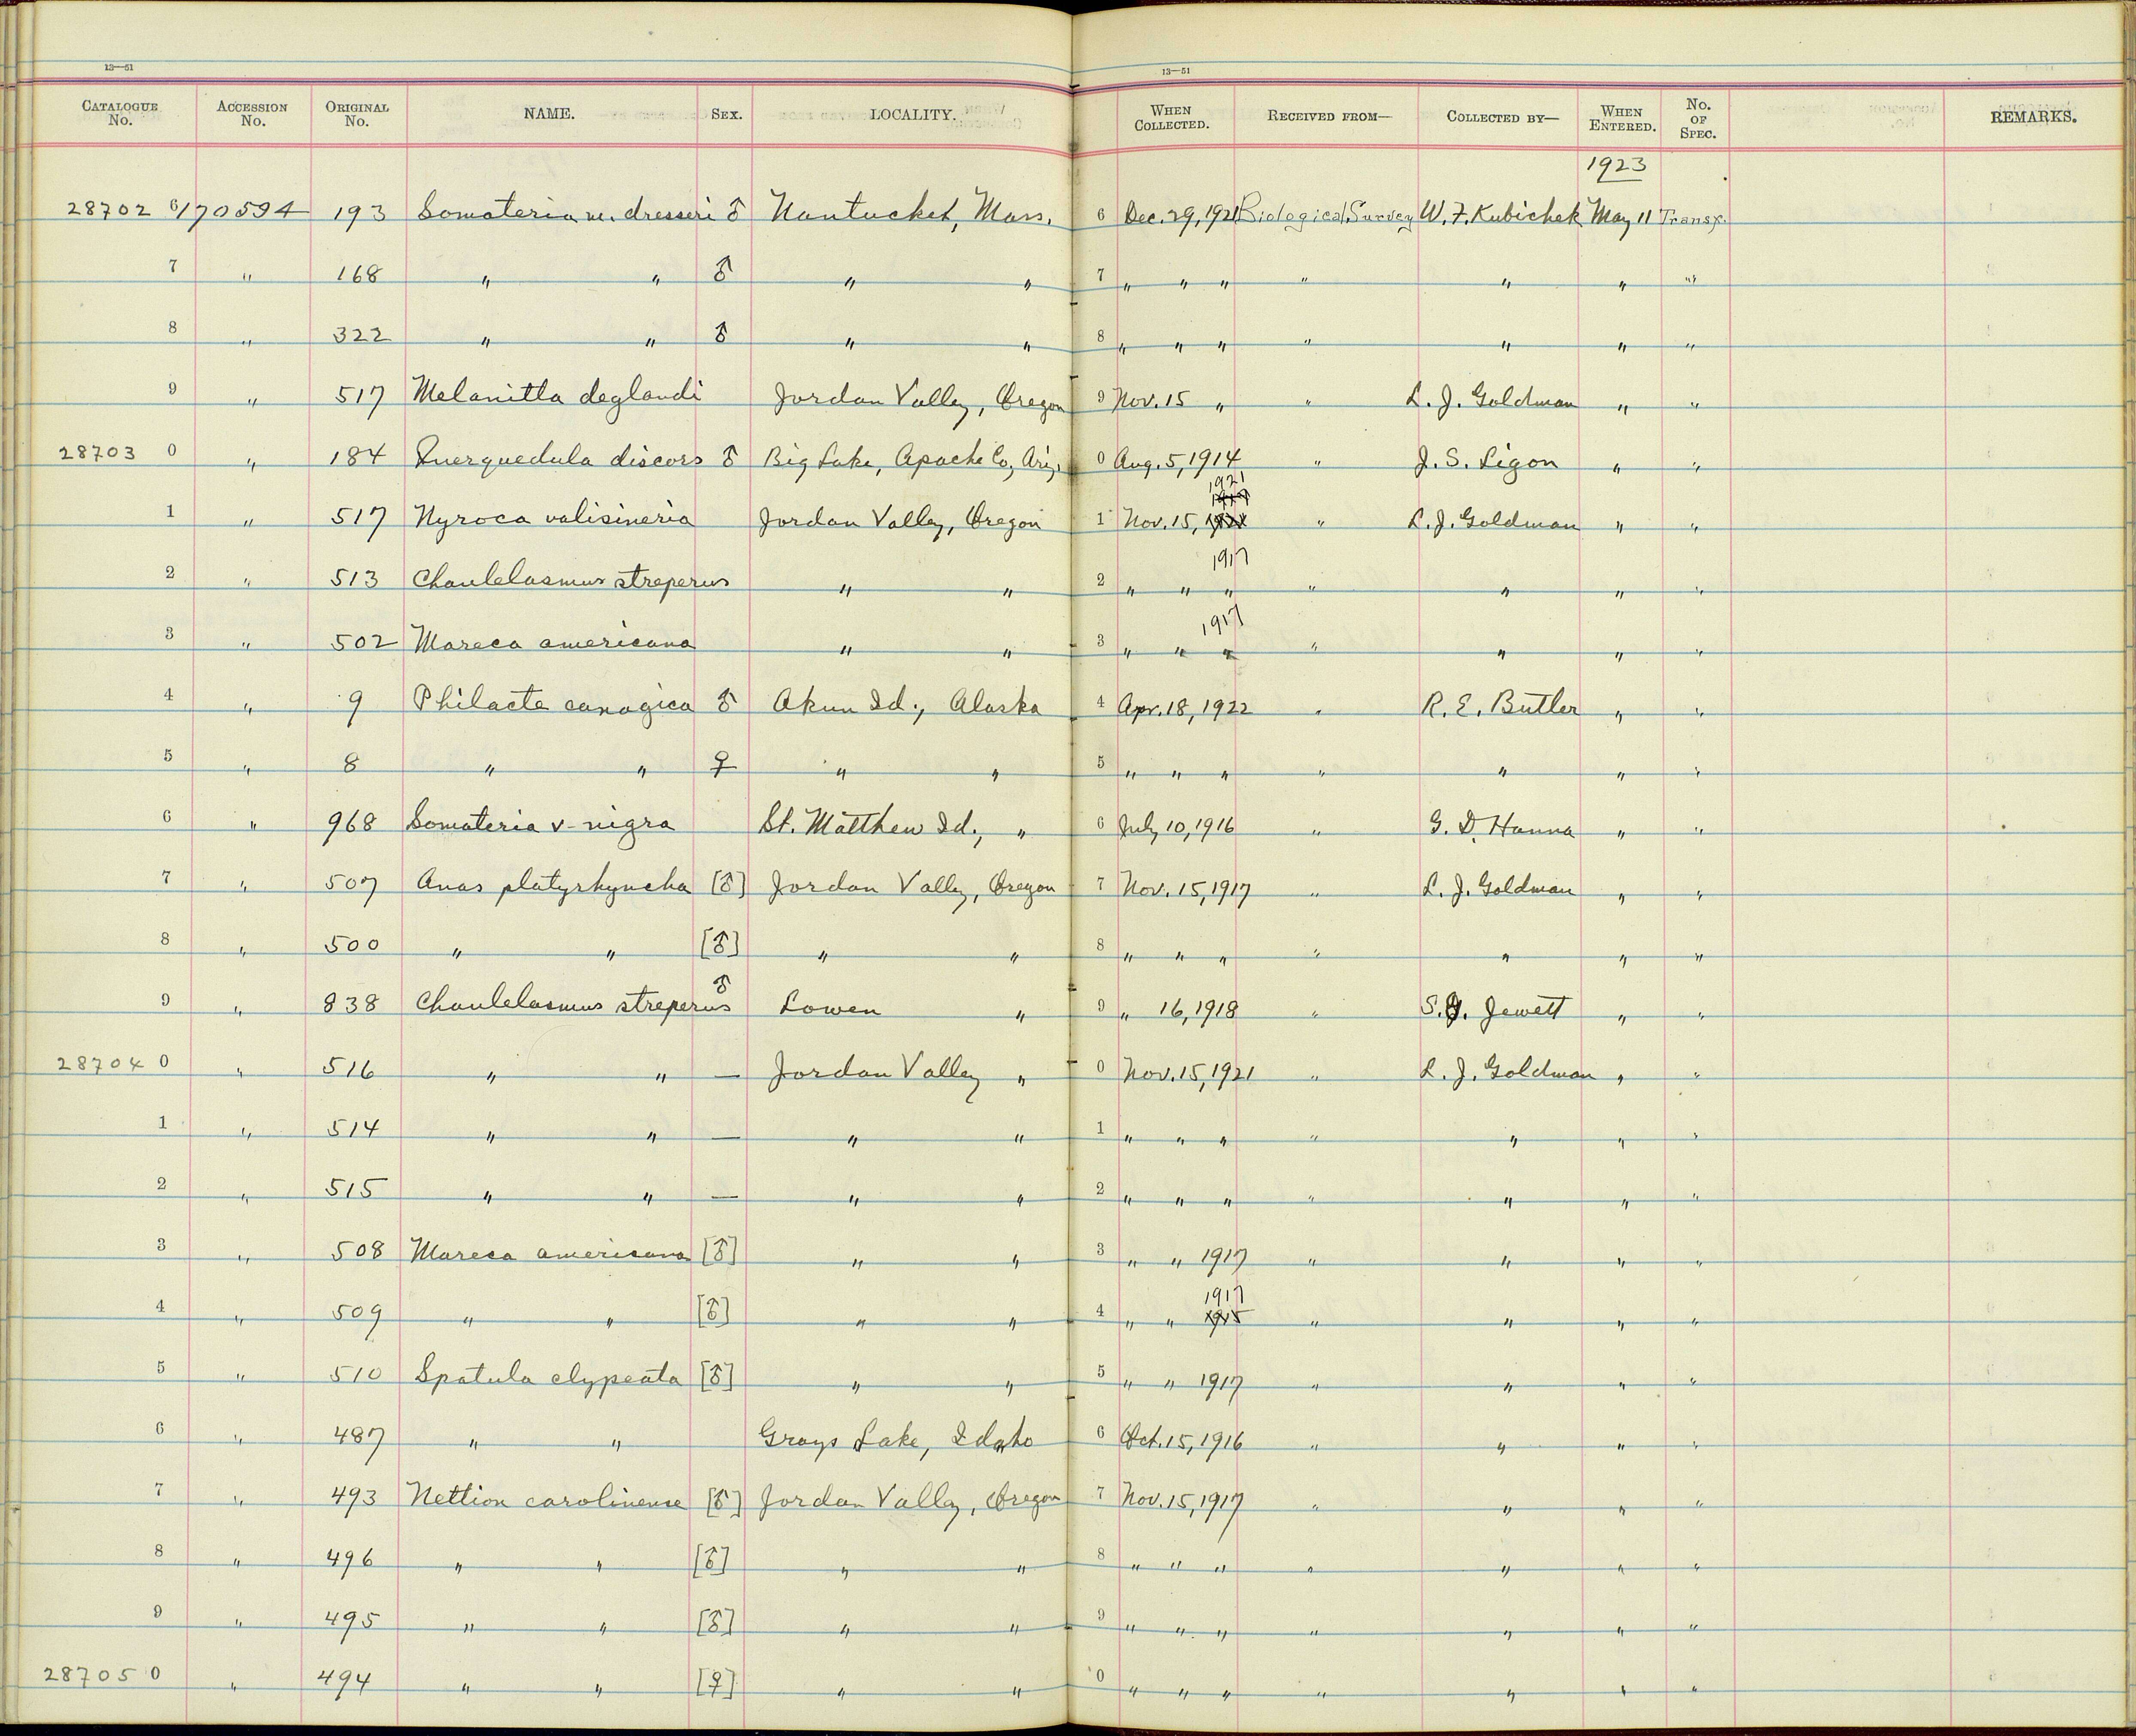 13—51 13—51
CATALOGUE No. ACCESSION No. ORIGINAL No. NAME. SEX. LOCALITY. WHEN COLLECTED. RECEIVED FROM— COLLECTED BY— WHEN ENTERED. No. OF SPEC. REMARKS.
1923
28702 6 170594 193 Somateria m. dresseri ♂ Nantucket, Mass. 6 Dec. 29, 1921 Biological Survey W. F. Kubichek May 11 Transf.
7 " 168 " " ♂ " " 7 " " " " " " "
8 " 322 " " ♂ " " 8 " " " " " " "
9 " 517 Melanitta deglandi Jordan Valley, Oregon 9 Nov. 15 " " L. J. Goldman " "
28703 0 " 184 Querquedula discors ♂ Big Lake, Apache Co, Ariz. 0 Aug. 5, 1914 " J. S. Ligon " "
1921
1917
1 " 517 Nyroca valisineria Jordan Valley, Oregon 1 Nov. 15, 1921 " L. J. Goldman " "
1917
2 " 513 Chaulelasmus streperus " " 2 " " " " " " "
1917
3 " 502 Mareca americana " " 3 " " " " " " "
4 " 9 Philacte canagica ♂ Akun Id., Alaska 4 Apr. 18, 1922 " R. E. Butler " "
5 " 8 " " ♀ " " 5 " " " " " " "
6 " 968 Somateria v-nigra St. Matthew Id., " 6 July 10, 1916 " G. D. Hanna " "
7 " 507 Anas platyrhyncha [♂] Jordan Valley, Oregon 7 Nov. 15, 1917 " L. J. Goldman " "
8 " 500 " " [♂] " " 8 " " " " " " "
9 " 838 Chaulelasmus streperus ♂ Lowen " 9 " 16, 1918 " S. G. Jewett " "
28704 0 " 516 " " — Jordan Valley " 0 Nov. 15, 1921 " L. J. Goldman " "
1 " 514 " " — " " 1 " " " " " " "
2 " 515 " " — " " 2 " " " " " " "
3 " 508 Mareca americana [♂] " " 3 " " 1917 " " " "
1917
4 " 509 " " [♂] " " 4 " " 1915 " " " "
5 " 510 Spatula clypeata [♂] " " 5 " " 1917 " " " "
6 " 487 " " Grays Lake, Idaho 6 Oct. 15, 1916 " " " "
7 " 493 Nettion carolinense [♂] Jordan Valley, Oregon 7 Nov. 15, 1917 " " " "
8 " 496 " " [♂] " " 8 " " " " " " "
9 " 495 " " [♂] " " 9 " " " " " " "
28705 0 " 494 " " [♀] " " 0 " " " " " " "